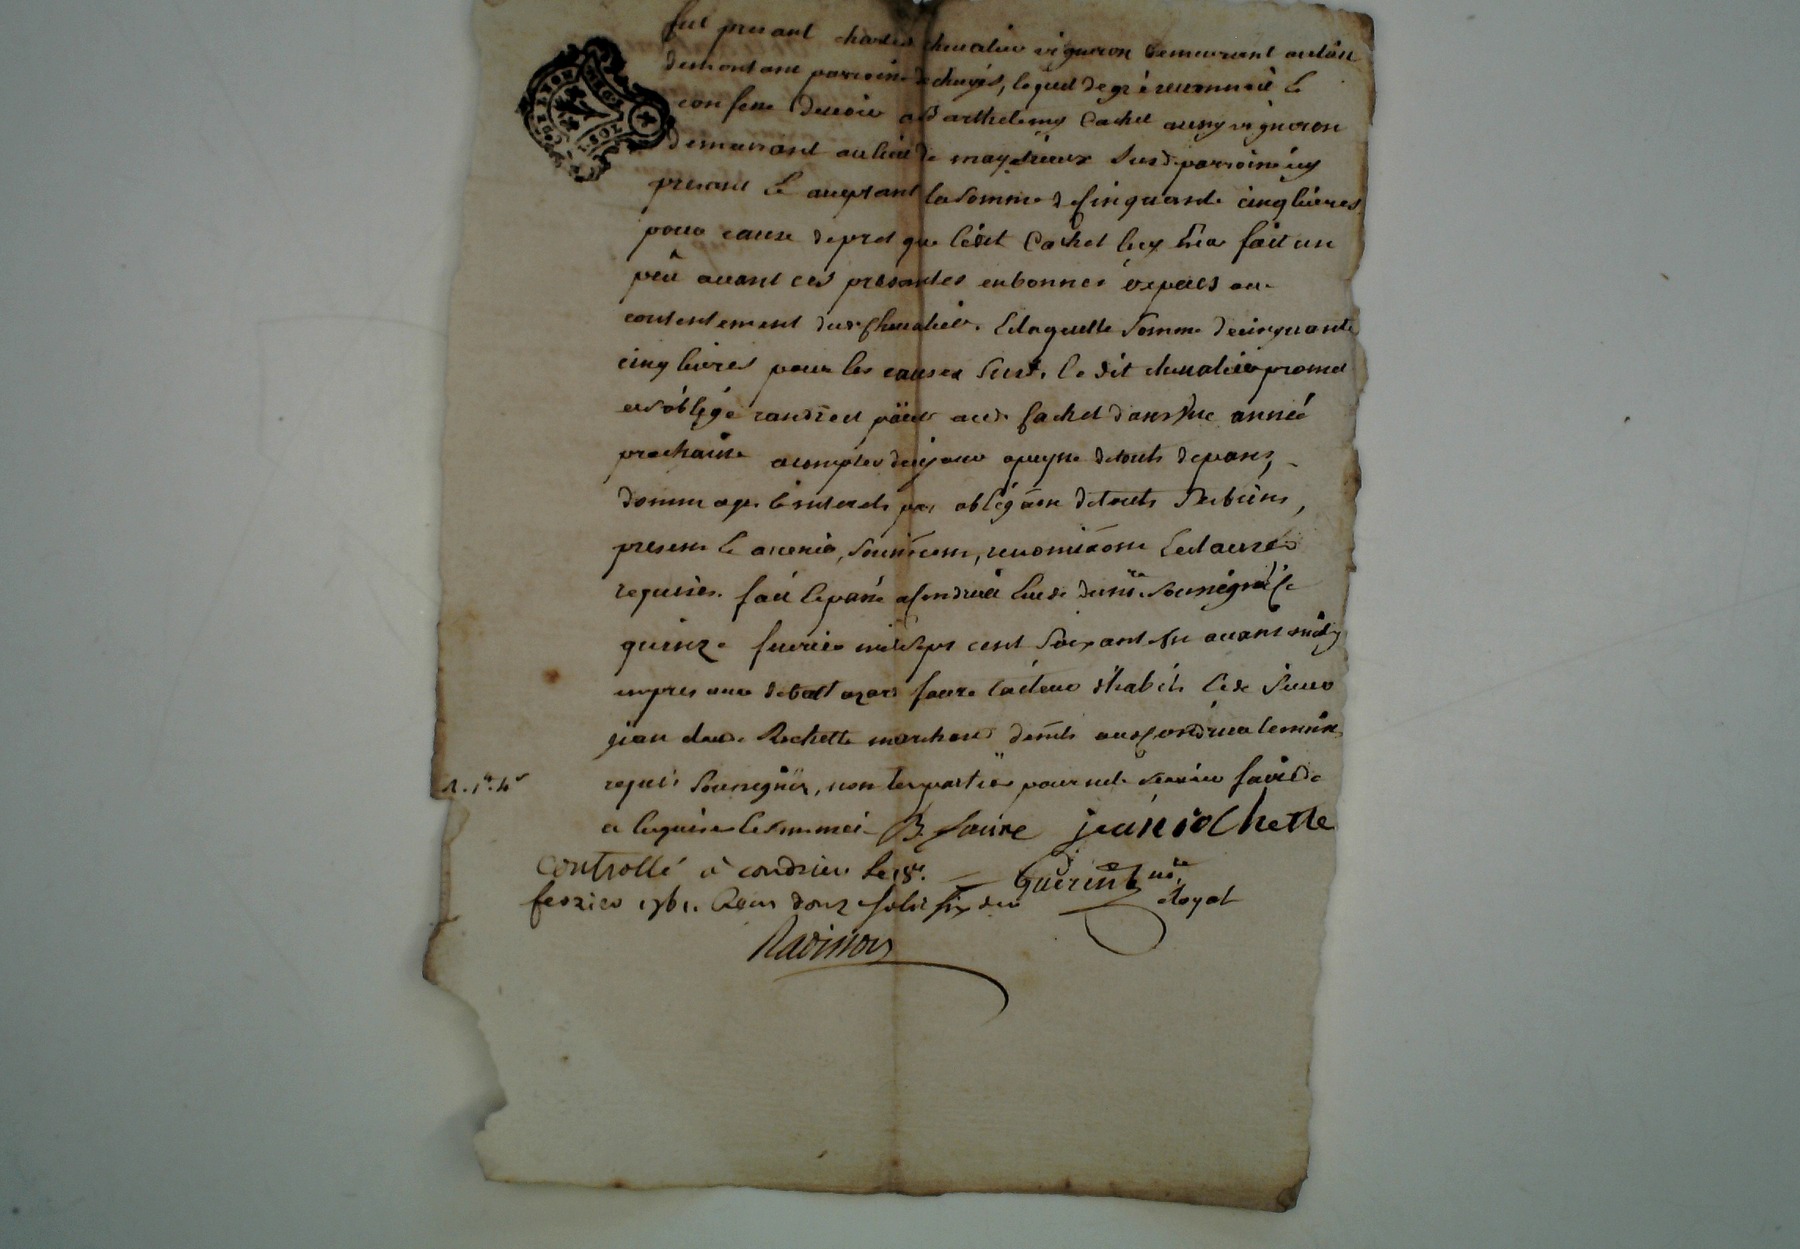 fut presant charles chevalier vigneron demeurant au lieu
de montant parroisse de chuyés, lequel de gré a reconnu et
confessé devoir a Barthelemy Cachet aussy vigneron
demeurant au lieu de susd. parroisse icy
presant et aceptant la somme de cinquante cinq livres
pour cause de pret que ledit Cachet luy en a fait un
peû avant ces presantes en bonnes éspeces au
contentement dud. chevalier. Laquelle somme de cinquante
cinq livres pour les causes susd. le dit chevalier promet
et s'oblige randre et païer aud. Cachet dans une année
prochaine a compter de ce jour a peyne de touts depans,
dommages et interets par obligãon de touts ses biens,
presents et avenir, soumissions, renonciãons et clauses
requises. fait et passé a Condrieu etude du nre soussigné le
quinze fevrier mil sept cent soixante un avant midy
en presance de Baltazard faure et de sieur
jean Rochette marchand aud. Condrieu temoins
requis soussignés, non les parties pour ne le scavoir faire de
ce enquises et sommées B. faure jean rochette
Controllé à condrieu le 15e.
fevrier 1761. Reçu douze sols six den
Guerin nre
Royal
Ravisson